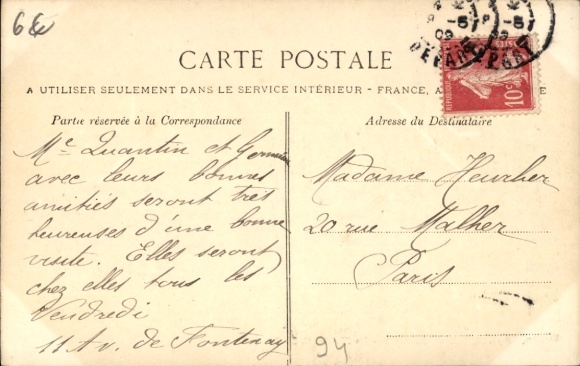 6€
CARTE POSTALE
A UTILISER SEULEMENT DANS LE SERVICE INTÉRIEUR - FRANCE, A
E
Partie réservée à la Correspondance
Adresse du Destinataire
Me Quantin et Germaine
avec leurs bonnes
amitiés seront très
heureuses d'une bonne
visite. Elles seront
chez elles tous les
Vendredi
11 Av. de Fontenay
Madame Heurher
20 rue Malher
Paris
94
10c
DEPART